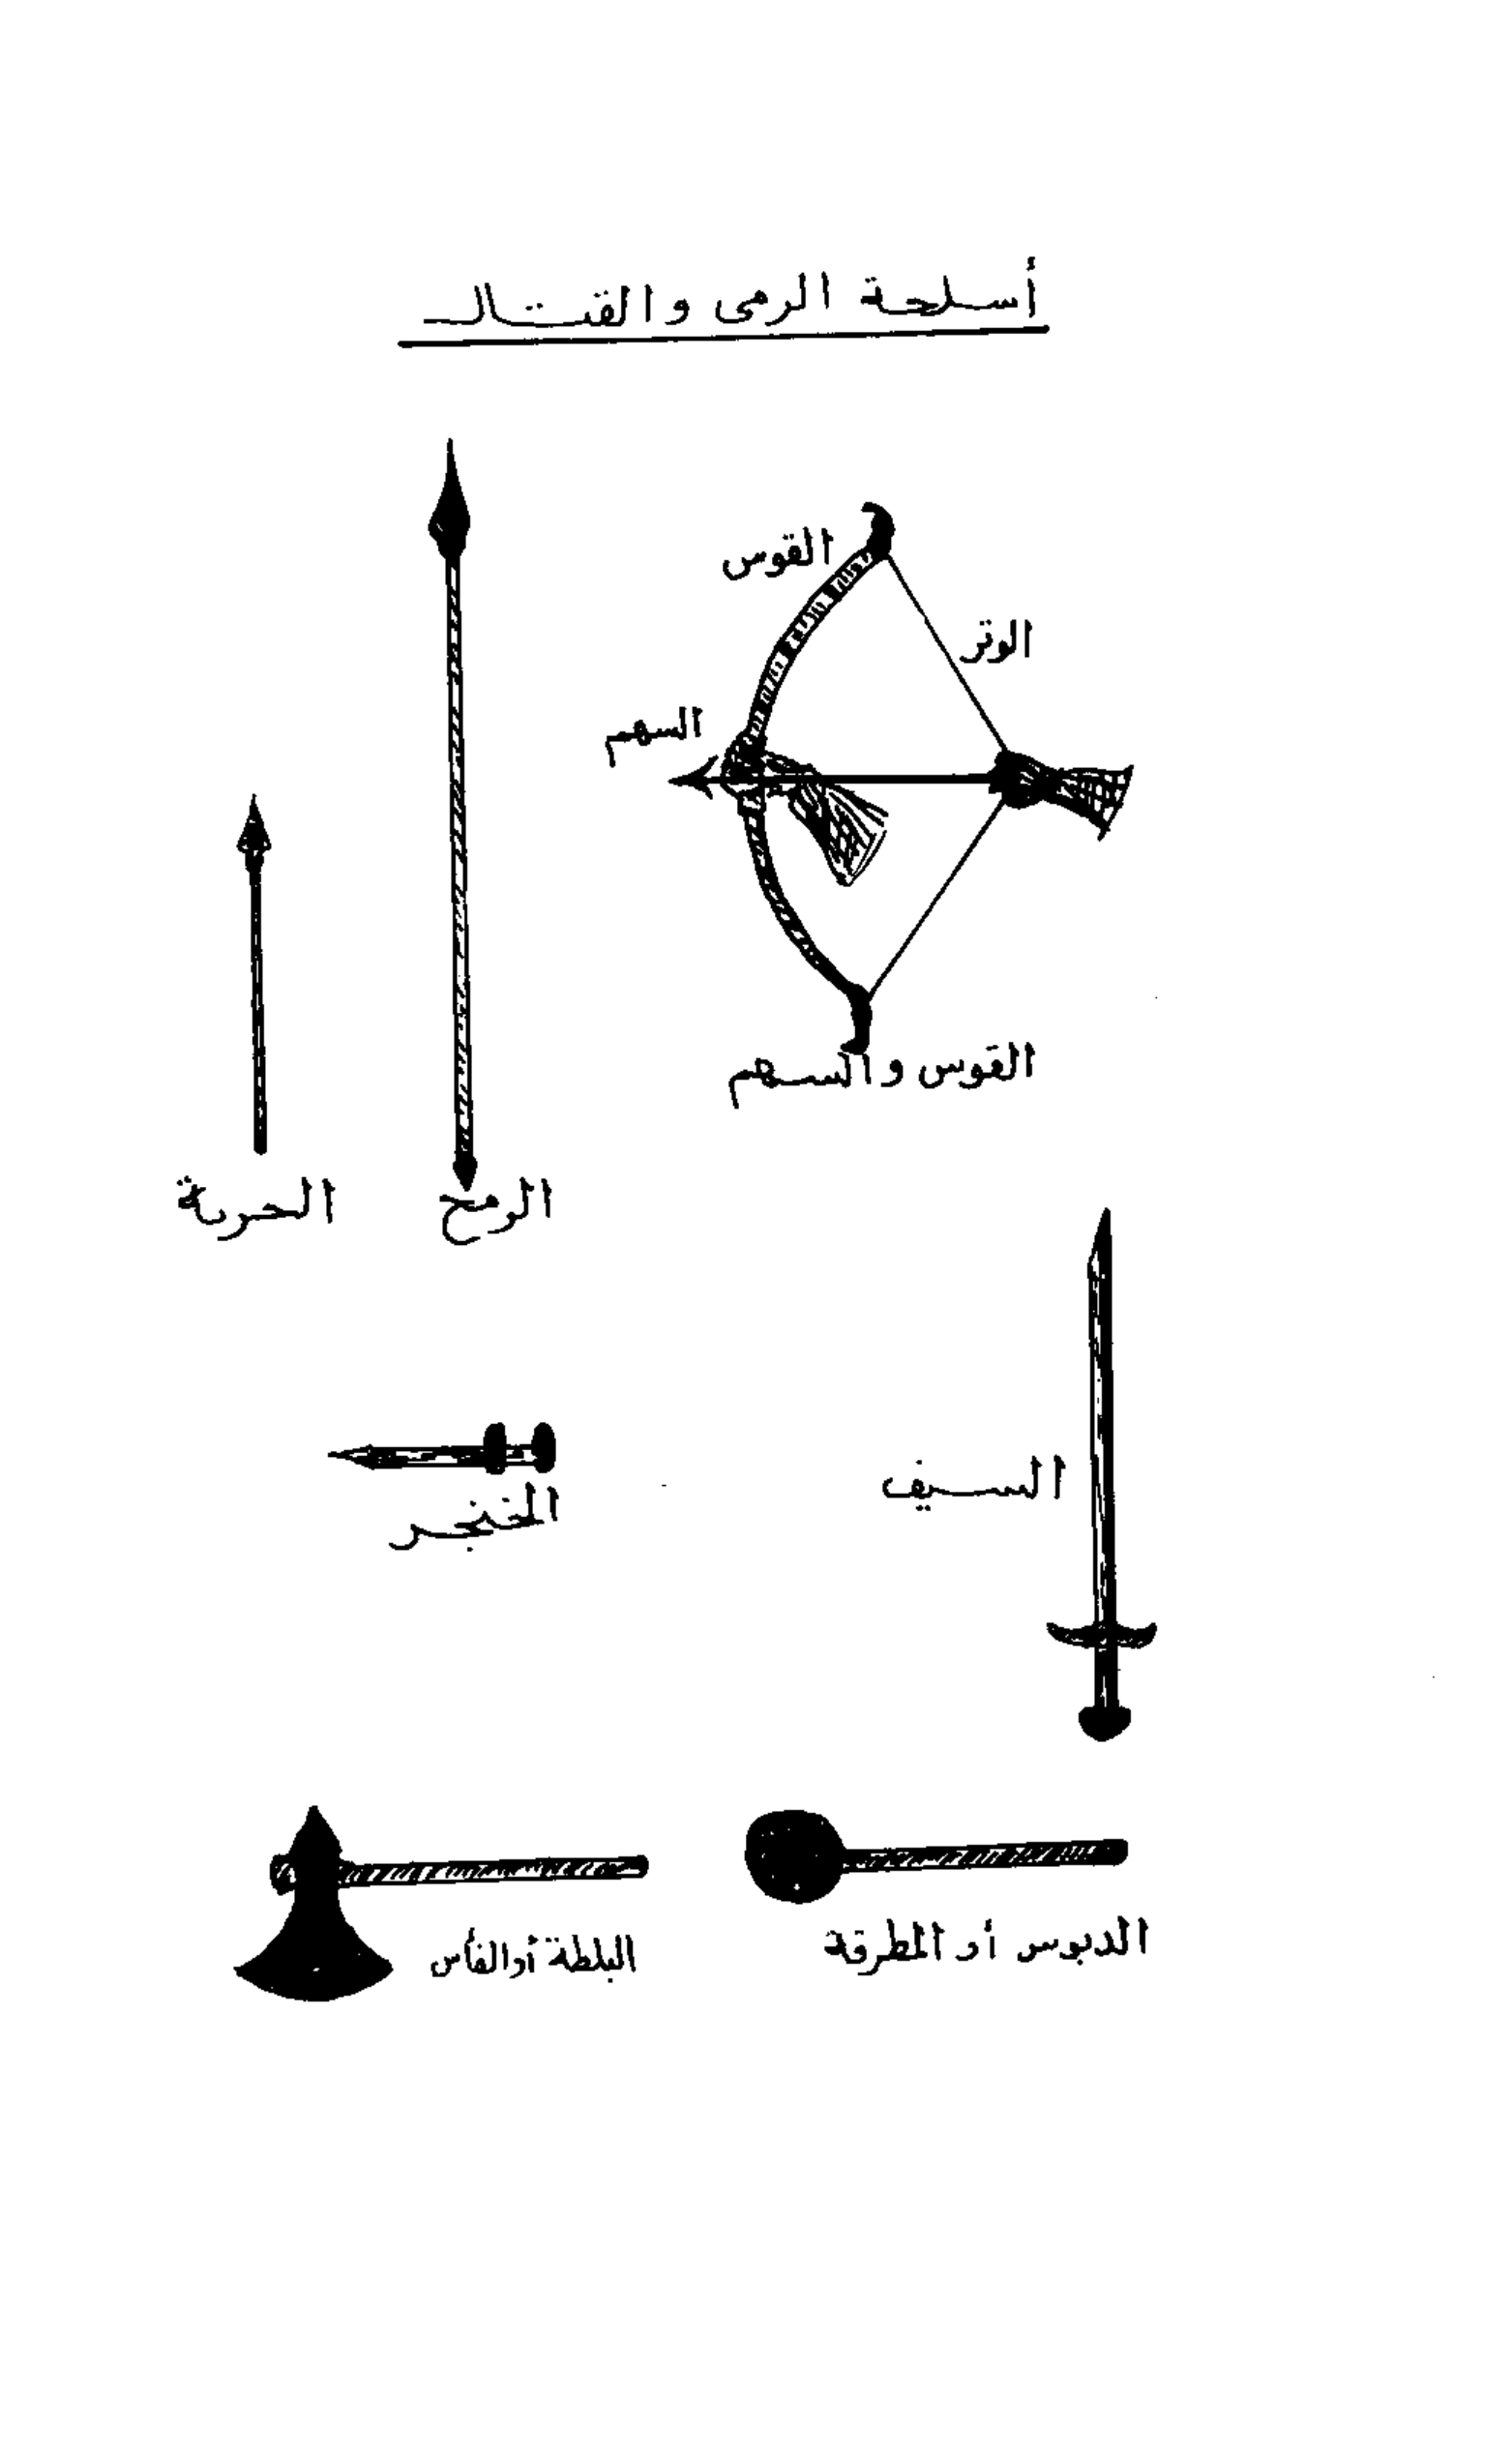 أسلحة الرمى والقتال
القوس
الوتر
السهم
القوس والسهم
الرمح
الحربة
السيف
الخنجر
الدبوس أو المطرقة
البلطة أو الفأس